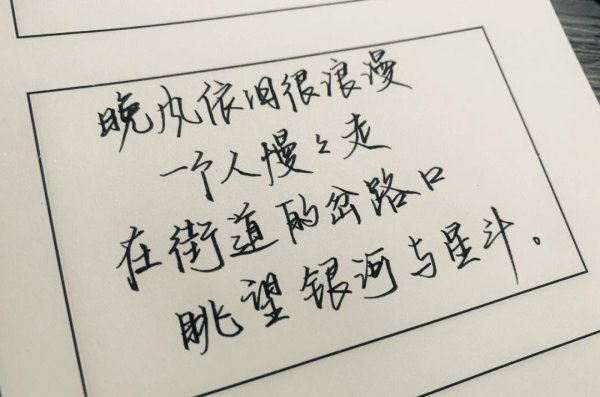 晚风依旧很浪漫
一个人慢々走
在街道的岔路口
眺望银河与星斗。